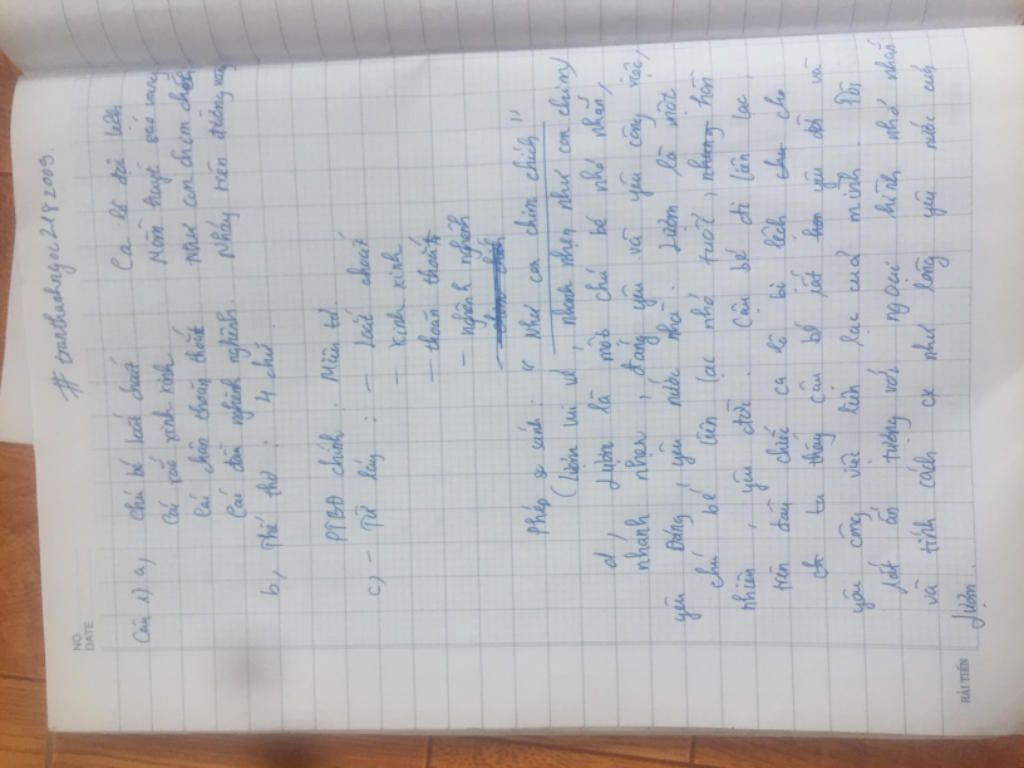 #tranthaongoc2182009.
NO
DATE
Câu 1) a, Chú bé loắt choắt Ca lô đội lệch
Cái xắc xinh xinh Mồm huýt sáo vang
Cái chân thoăn thoắt Như con chim chích
Cái đầu nghênh nghênh. Nhảy trên đường vàng
b, Thể thơ : 4 chữ
PTBĐ chính : Miêu tả.
c, - Từ láy : - loắt choắt
- xinh xinh
- thoăn thoắt
- nghênh nghênh
Phép so sánh : " Như con chim chích "
( Lượm vui vẻ, nhanh nhẹn như con chim)
d, Lượm là một chú bé nhỏ nhắn,
nhanh nhẹn, đáng yêu và yêu công việc,
yêu Đảng, yêu nước nhà. Lượm là một
chú bé liên lạc nhỏ tuổi, hồn
nhiên, yêu đời. Cậu bé đi liên lạc,
trên đầu chiếc ca lô bị lệch cho
ta thấy cậu bé rất yêu đời và
yêu công việc liên lạc của mình. Tôi
rất ấn tượng với ngoại hình nhỏ nhắn
và tính cách cx như lòng yêu nước của
Lượm.
HẢI TIẾN